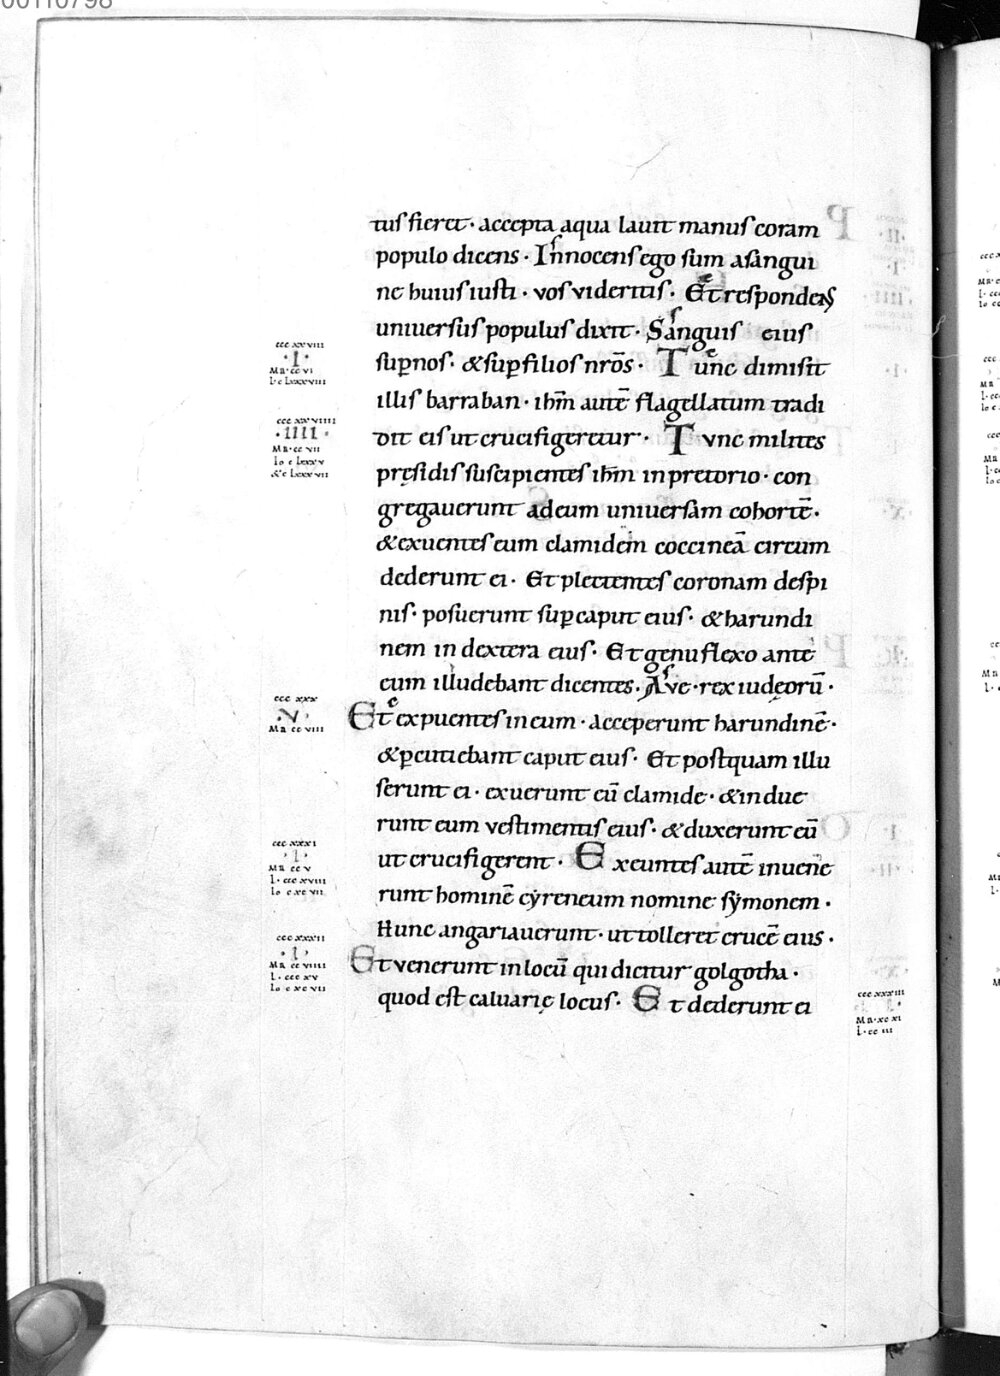 00110798
tuſ fieret · accepta aqua lauit manuſ coram
populo dicens · Innocenſ ego ſum aſangui
ne huiuſ iuſti · voſ videritiſ · Et reſpondens
uniuerſuſ populuſ dixit · Sanguiſ eiuſ
ſuꝑ noſ · & ſuꝑ filioſ nr̄oſ · Tunc dimiſit
illiſ barraban · ihm̄ autē flagellatum tradi
dit eiſ ut crucifigeretur · Tvnc militeſ
preſidiſ ſuſcipienteſ ihm̄ in pretorio · con
gregauerunt ad eum uniuerſam cohortē ·
& exuenteſ eum clamidem coccineā circum
dederunt ei · Et plectenteſ coronam deſpi
niſ · poſuerunt ſuꝑ caput eiuſ · & harundi
nem in dextera eiuſ · Et genu flexo ante
eum illudebant dicenteſ · Ave · rex iudęorū ·
Et expuenteſ in eum · acceperunt harundinē ·
& ꝑcutiebant caput eiuſ · Et poſtquam illu
ſerunt ei · exuerunt eū clamide · & indue
runt eum veſtimentiſ eiuſ · & duxerunt eū
ut crucifigerent · Exeunteſ autē inuene
runt hominē cyreneum nomine ſymonem ·
Hunc angariauerunt · ut tolleret crucē eiuſ ·
Et venerunt in locū qui dicitur golgotha ·
quod eſt caluarię locuſ · Et dederunt ei
ccc xxviii
· I ·
Mr · cc vi
l · c lxxxviii
ccc xxviiii
· IIII ·
Mr · cc vii
ccc xxx
· V ·
Mr cc viii
ccc xxxi
· I ·
Mr cc v
l · ccc xviii
Io c xc vii
ccc xxxii
· I ·
Mr cc viiii
l · ccc xv
Io c xc vii
ccc xxxiii